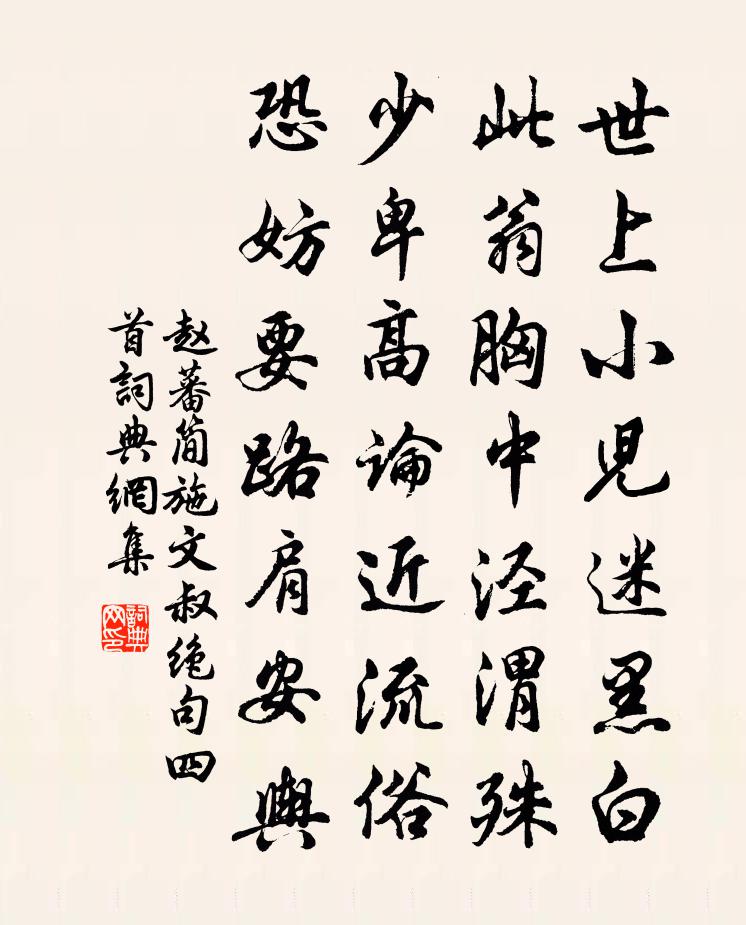 世上小児迷黑白
此翁胸中泾渭殊
少卑高論近流俗
恐妨要路肩安輿
赵蕃简施文叔绝句四
首詞典網集
詞典
网印